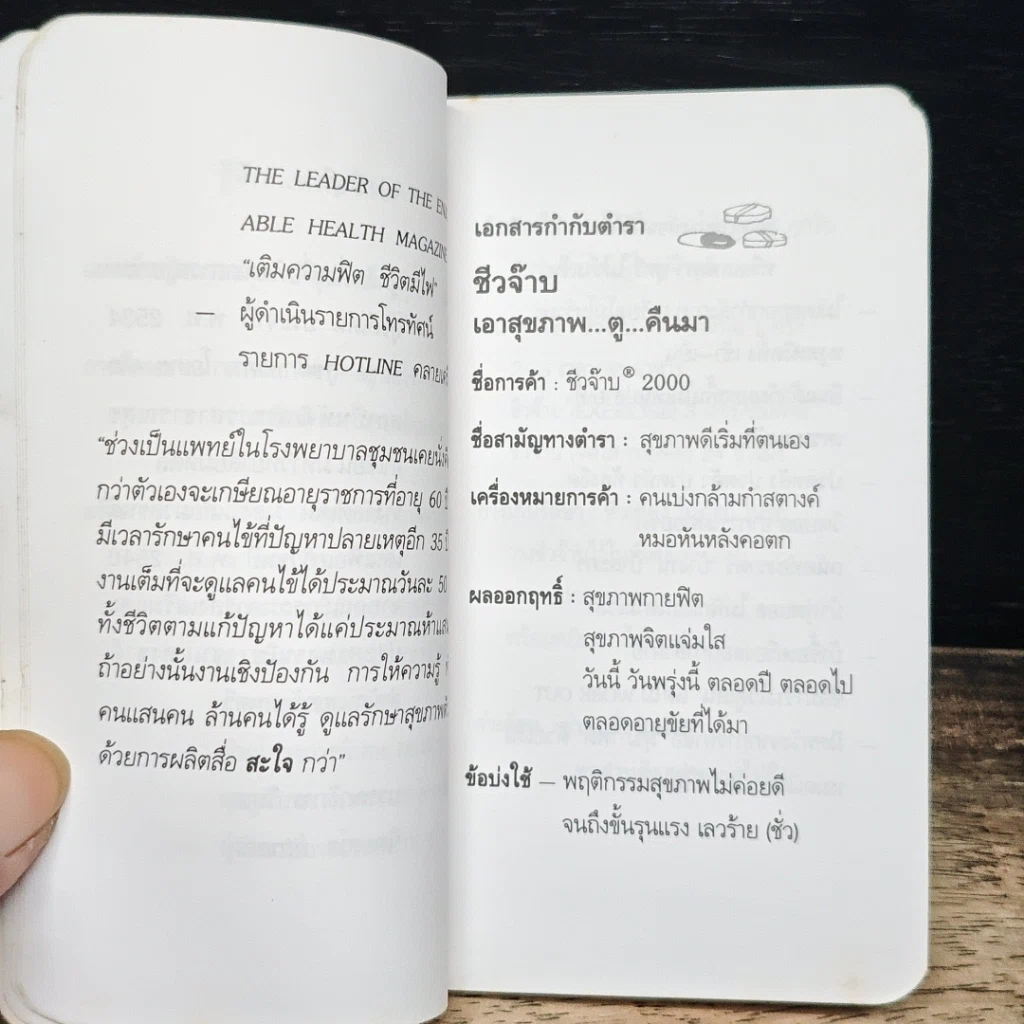 THE LEADER OF THE
ABLE HEALTH MAGAZINE
“เติมความฟิต ชีวิตมีไฟ”
— ผู้ดำเนินรายการโทรทัศน์
รายการ HOTLINE
“ช่วงเป็นแพทย์ในโรงพยาบาลชุมชนเคย
กว่าตัวเองจะเกษียณอายุราชการที่อายุ 60
มีเวลารักษาคนไข้ที่ปัญหาปลายเหตุอีก 35
งานเต็มที่จะดูแลคนไข้ได้ประมาณวันละ 50
ทั้งชีวิตตามแก้ปัญหาได้แค่ประมาณ
ถ้าอย่างนั้นงานเชิงป้องกัน การให้ความรู้
คนแสนคน ล้านคนได้รู้ ดูแลรักษาสุขภาพ
ด้วยการผลิตสื่อ สะใจ กว่า”
เอกสารกำกับตำรา
ชีวจ๊าบ
เอาสุขภาพ...ตู...คืนมา
ชื่อการค้า : ชีวจ๊าบ® 2000
ชื่อสามัญทางตำรา : สุขภาพดีเริ่มที่ตนเอง
เครื่องหมายการค้า : คนเบ่งกล้ามกำสตางค์
หมอหันหลังคอตก
ผลออกฤทธิ์ : สุขภาพกายฟิต
สุขภาพจิตแจ่มใส
วันนี้ วันพรุ่งนี้ ตลอดปี ตลอดไป
ตลอดอายุขัยที่ได้มา
ข้อบ่งใช้ — พฤติกรรมสุขภาพไม่ค่อยดี
จนถึงขั้นรุนแรง เลวร้าย (ชั่ว)